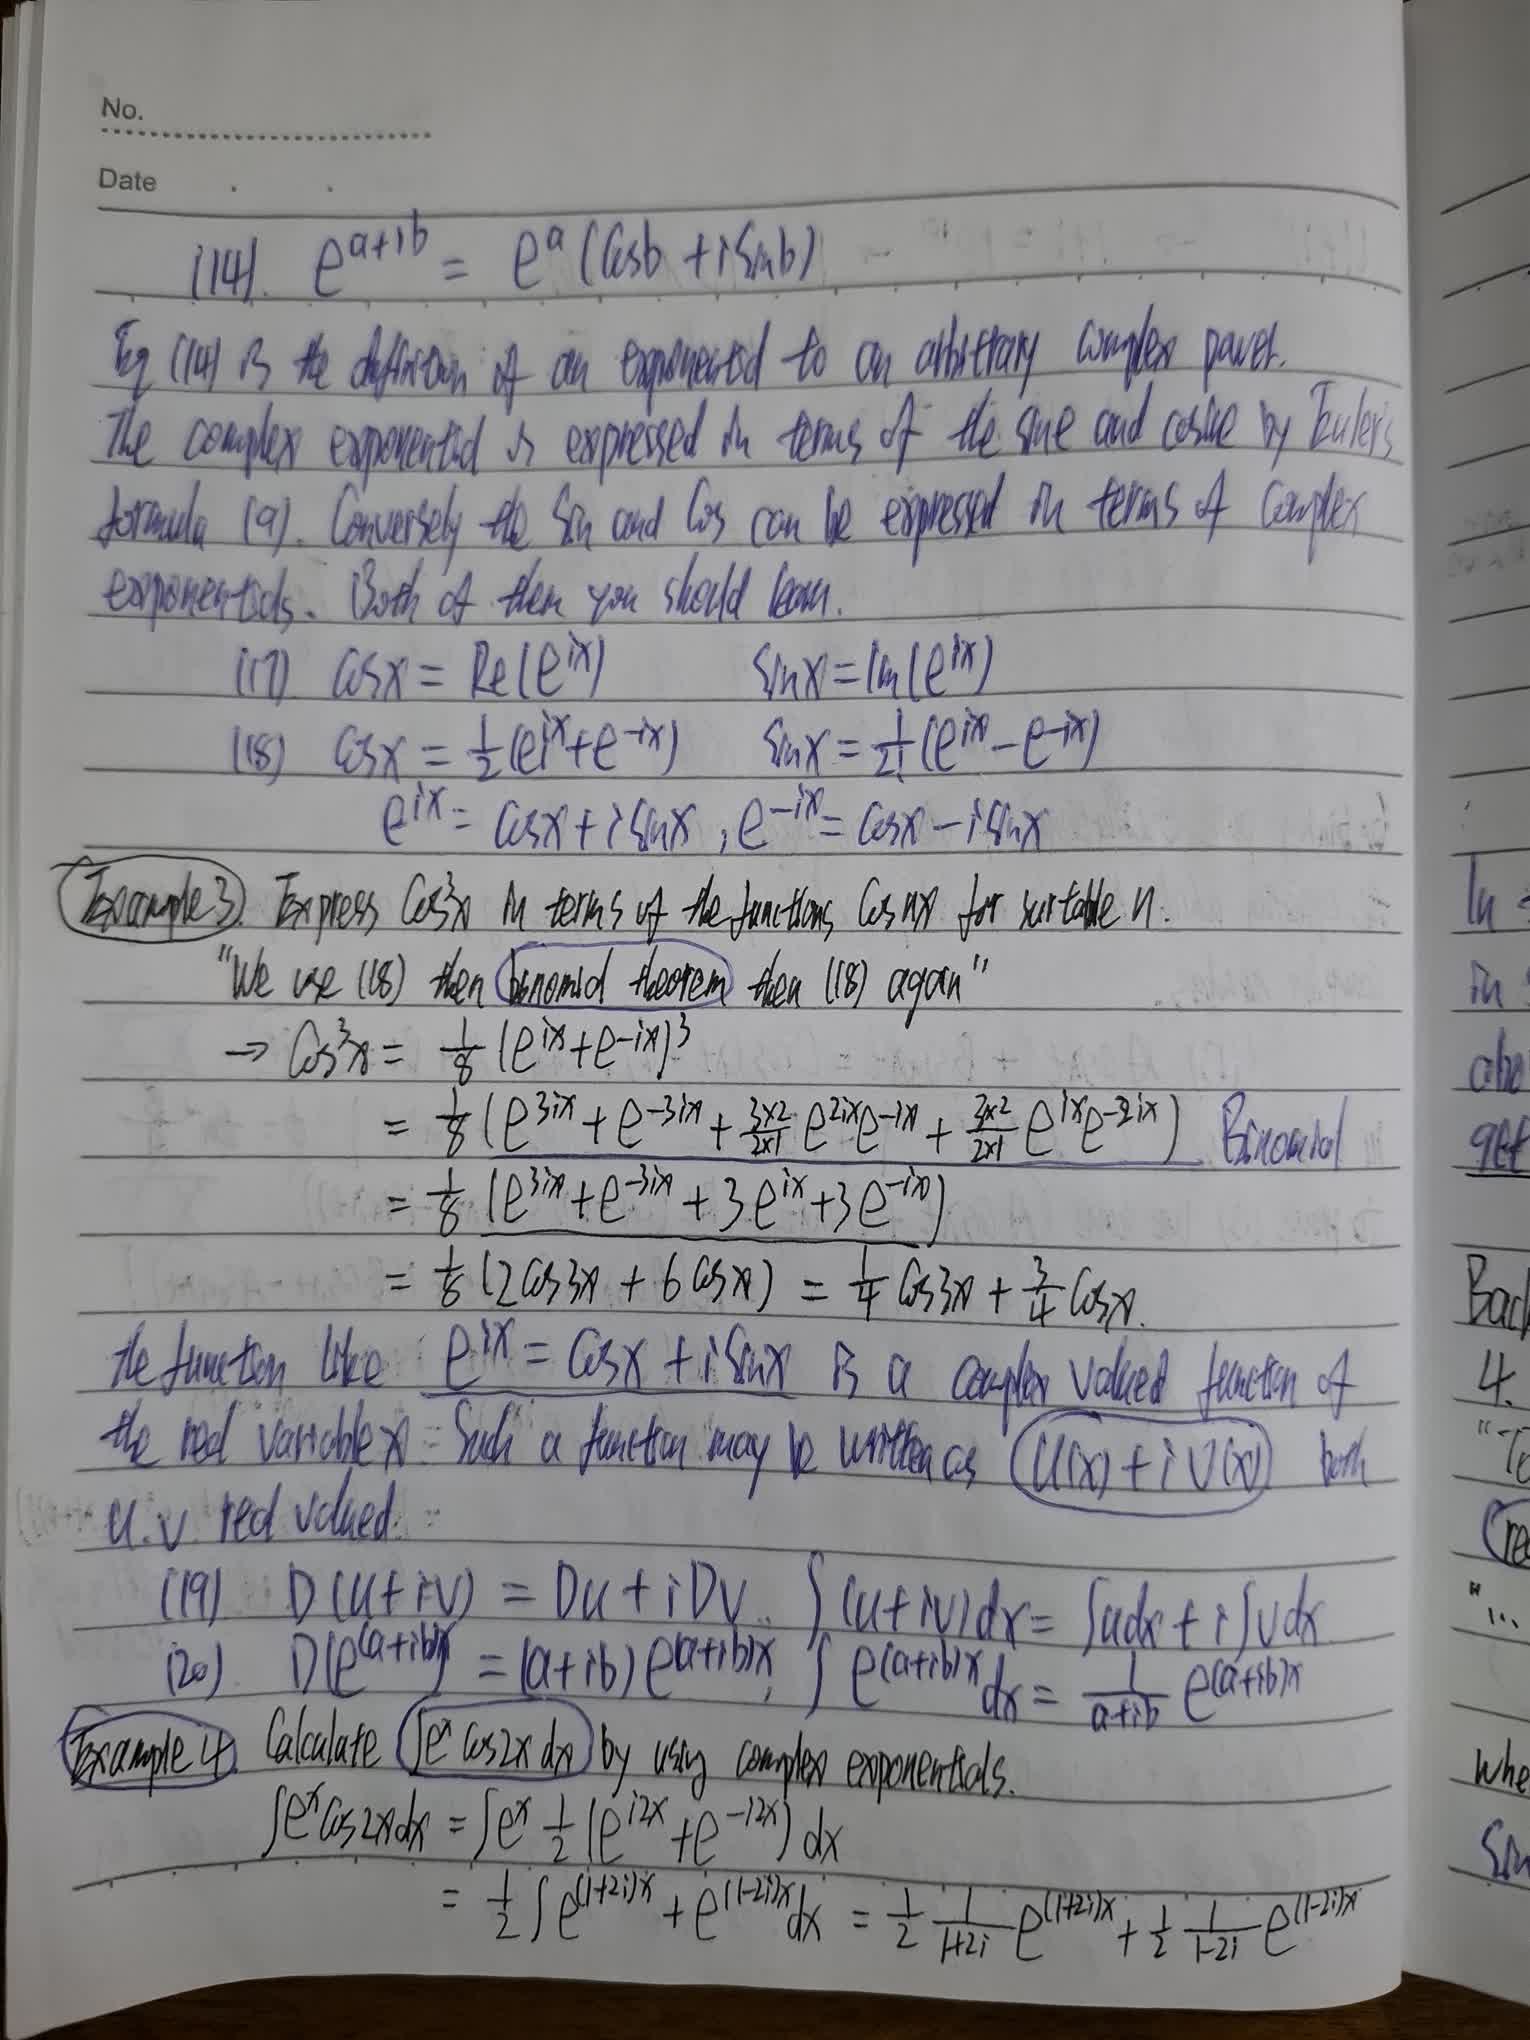 No.
Date
(14). e^{a+ib} = e^a (Cosb + i Sinb)
Eq (14) is the definition of an exponential to an arbitrary complex power.
The complex exponential is expressed in terms of the sine and cosine by Euler's
formula (9). Conversely the Sin and Cos can be expressed in terms of complex
exponentials. Both of them you should learn.
(17) Cosx = Re(e^{ix}) Sinx = Im(e^{ix})
(18) Cosx = 1/2 (e^{ix} + e^{-ix}) Sinx = 1/2i (e^{ix} - e^{-ix})
e^{ix} = Cosx + i Sinx, e^{-ix} = Cosx - i Sinx
Example 3. Express Cos^3x in terms of the functions Cos nx for suitable n.
"We use (18) then binomial theorem then (18) again"
→ Cos^3x = 1/8 (e^{ix} + e^{-ix})^3
= 1/8 (e^{3ix} + e^{-3ix} + 3x2/2x1 e^{2ix}e^{-ix} + 3x2/2x1 e^{ix}e^{-2ix}) Binomial
= 1/8 (e^{3ix} + e^{-3ix} + 3e^{ix} + 3e^{-ix})
= 1/8 (2Cos3x + 6Cosx) = 1/4 Cos3x + 3/4 Cosx.
the function like e^{ix} = Cosx + i Sinx is a complex valued function of
the real variable x. Such a function may be written as U(x) + i V(x) both
u. v. real valued.
(19) D(u+iv) = Du + i Dv. ∫(u+iv)dx = ∫udx + i∫vdx
(20). D(e^{(a+ib)x}) = (a+ib) e^{(a+ib)x}, ∫e^{(a+ib)x}dx = 1/a+ib e^{(a+ib)x}
Example 4. Calculate ∫e^x Cos2x dx by using complex exponentials.
∫e^x Cos2xdx = ∫e^x 1/2 (e^{i2x} + e^{-i2x}) dx
= 1/2 ∫e^{(1+2i)x} + e^{(1-2i)x}dx = 1/2 1/1+2i e^{(1+2i)x} + 1/2 1/1-2i e^{(1-2i)x}
In
in
get
4.
Sin